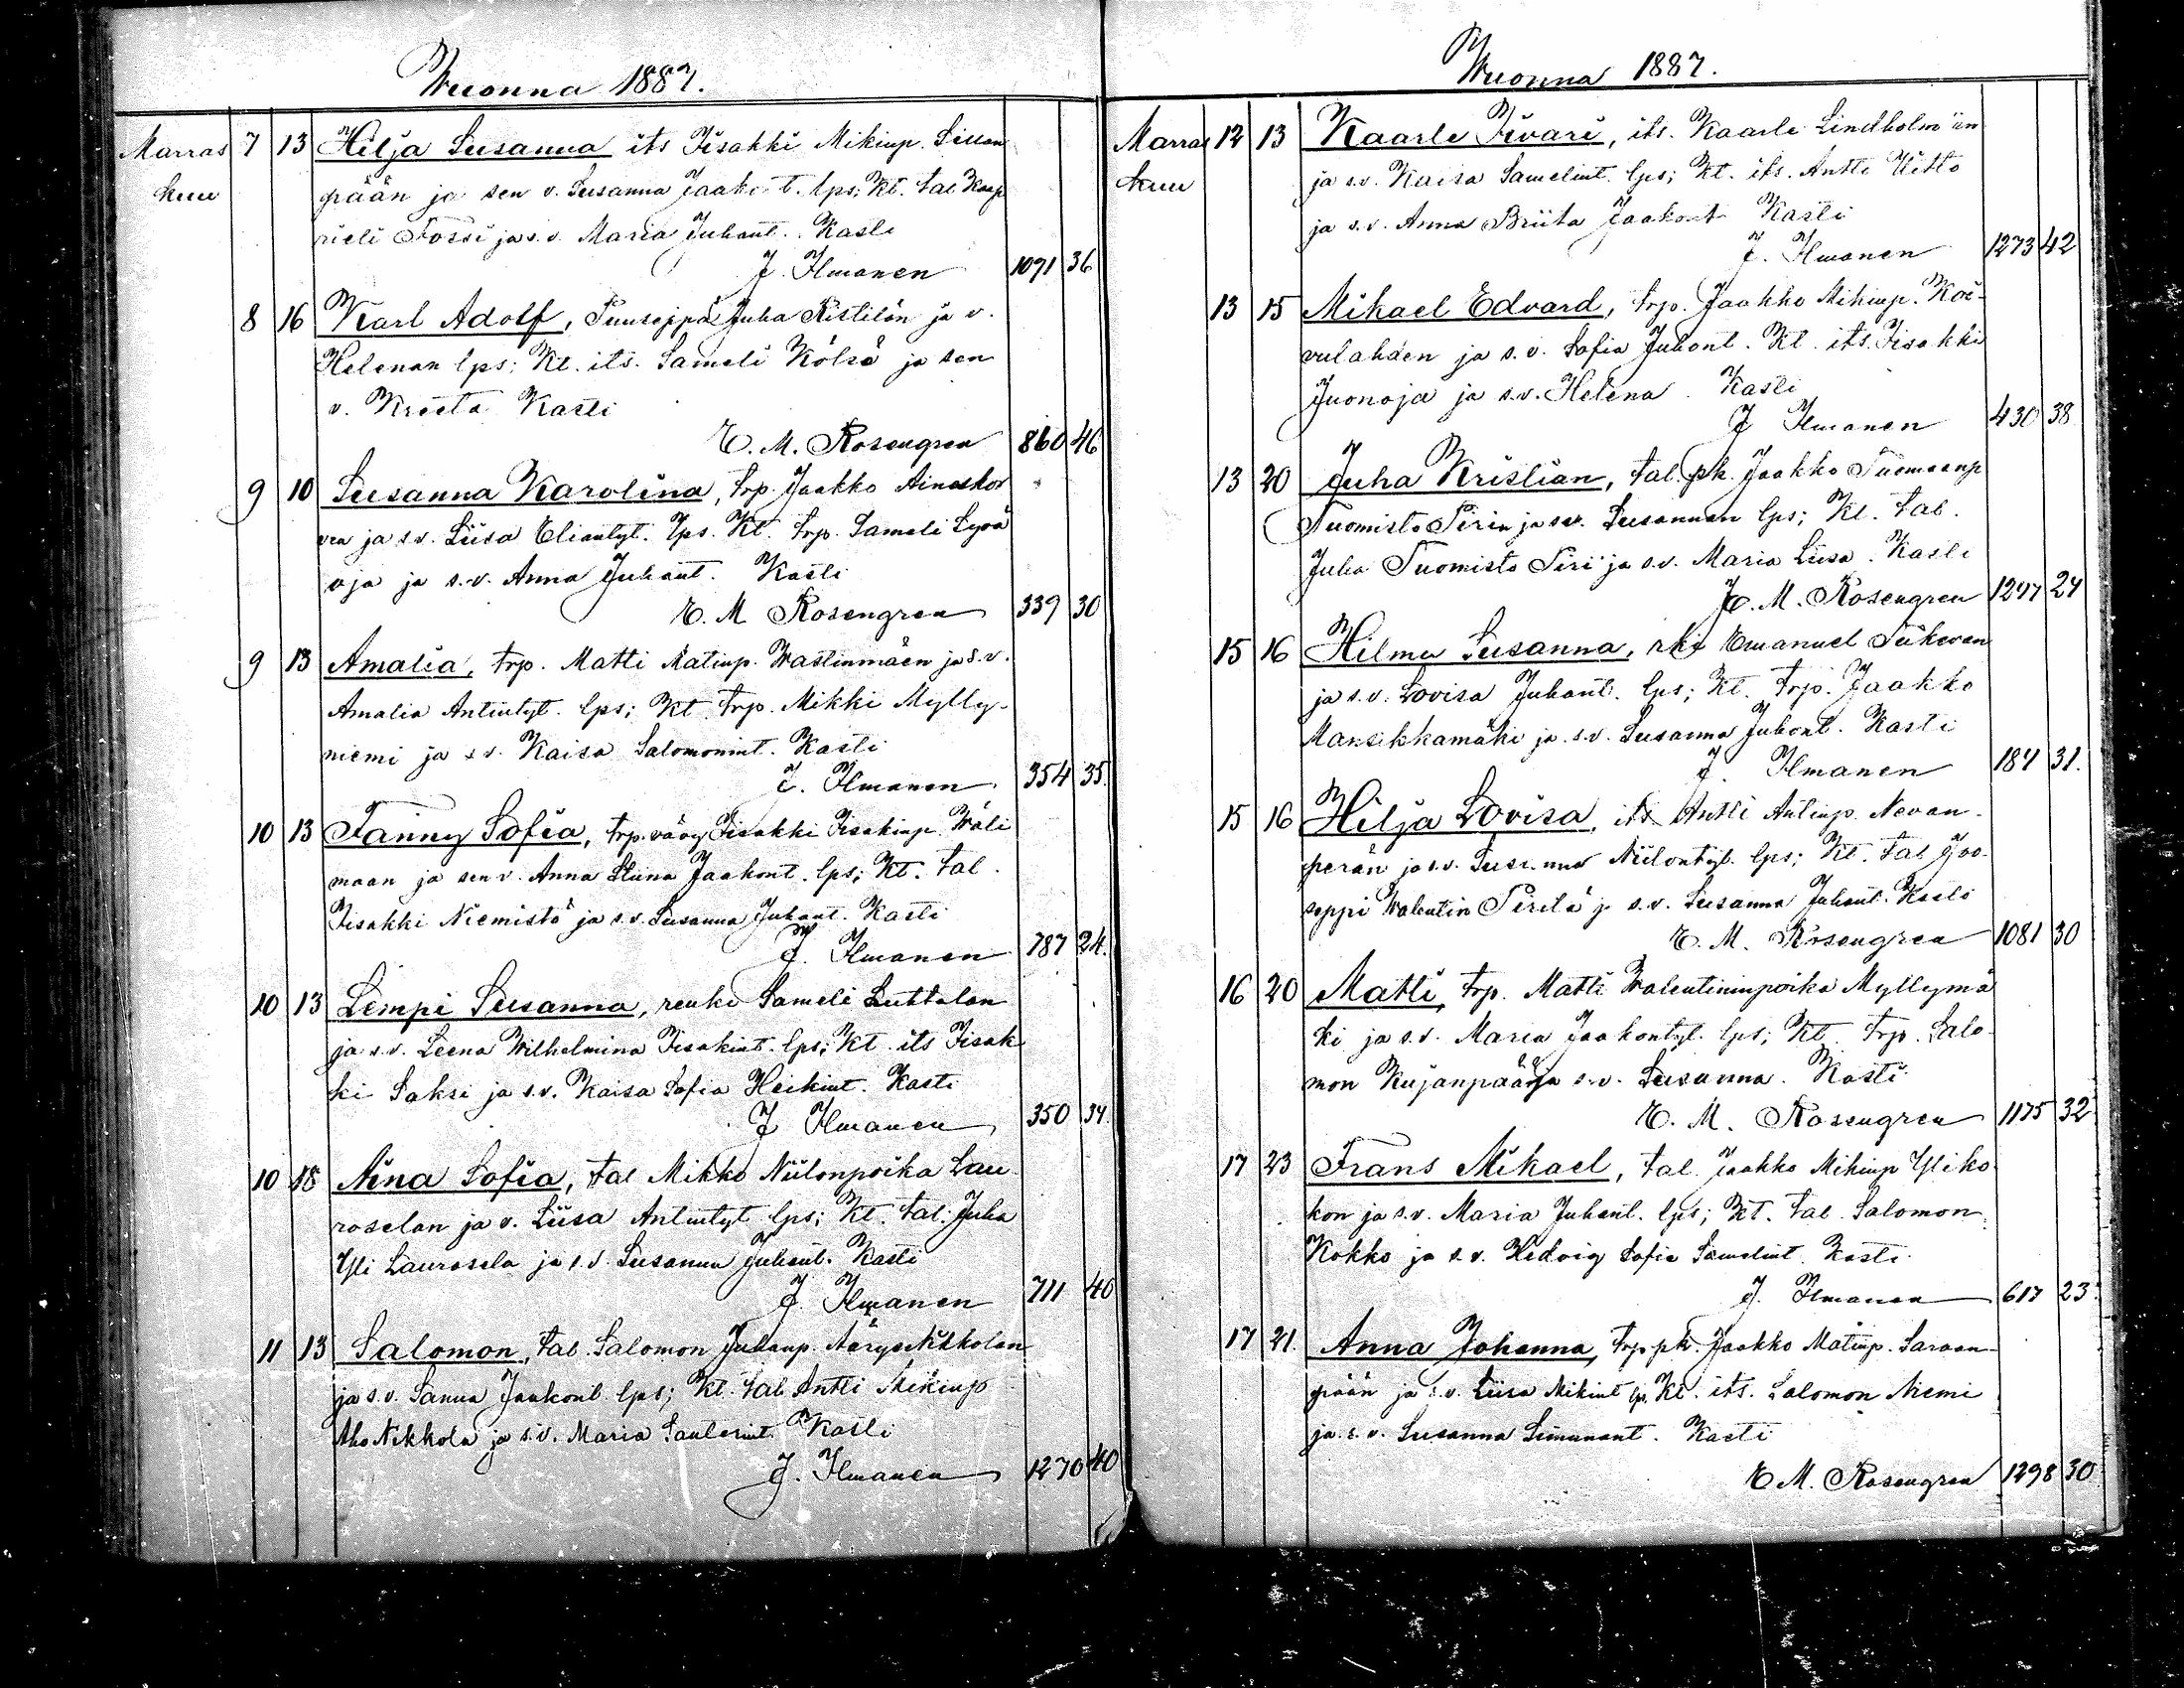 Wuonna 1887.
Marras 7 13 Hilja Susanna its Iisakki Mikinp. Sillan
kuu pään ja sen v. Susanna Jaakont. lps; Kt. tal Kaap
rieli Fossi ja s.v. Maria Juhant. Kasti
J. Ilmanen 1091 36
8 16 Karl Adolf, Puuseppä Juha Ristilön ja v.
Helenan lps; Kt. its. Sameli Kölsö ja sen
v. Kreeta Kasti
E. M. Rosengren 860 46
9 10 Susanna Karolina, trp. Jaakko Ainaskor
ven ja s.v. Liisa Eliantyt. lps. Kt. trp. Sameli Lyöä
oja ja s.v. Anna Juhant. Kasti
E. M Rosengren 339 30
9 13 Amalia, trp. Matti Matinp. Wastinmäen ja s.v.
Amalia Antintyt. lps; Kt trp. Mikki Mylly-
niemi ja s v. Kaisa Salomonint. Kasti
J. Ilmanen 354 35.
10 13 Fanny Sofia, trp. vävy Iisakki Iisakinp. Wäli
maan ja sen v. Anna Stiina Jaakont. lps; Kt. tal.
Iisakki Niemistö ja s.v. Susanna Juhant. Kasti
J. Ilmanen 787 24.
10 13 Lempi Susanna, renki Sameli Luhtalan
ja s.v. Leena Wilhelmina Iisakint. lps; Kt. its Iisak
ki Saksi ja s.v. Kaisa Sofia Heikint. Kasti
J Ilmanen 350 34.
10 18 Aina Sofia, tal Mikko Niilonpoika Lau
roselan ja v. Liisa Antintyt lps; Kt. tal. Juha
Yli Laurosela ja s.v. Susanna Juhant. Kasti
J. Ilmanen 711 40
11 13 Salomon, tal. Salomon Juhanp. Nikkolan
ja s.v. Sanna Jaakont. lps; Kt. tal Antti Mikinp
Aho Nikkola ja s.v. Maria Kasti
J. Ilmanen 1270 40
Wuonna 1887.
Marras 12 13 Kaarle Iivari, its. Kaarle Lindholm'in
kuu ja s.v. Kaisa Samelint. lps; Kt. its. Antti Uitto
ja s.v. Anna Briita Jaakont Kasti
J. Ilmanen 1273 42
13 15 Mikael Edvard, trp. Jaakko Mikinp. Koi-
vulahden ja s.v. Sofia Juhont. Kt. its. Iisakki
Juonoja ja s.v. Helena. Kasti
J Ilmanen 430 38
13 20 Juha Kristian, tal. pk. Jaakko Tuomaanp
Tuomisto Pirin ja s.v. Susannan lps; Kt. tal.
Juha Tuomisto Piri ja s.v. Maria Liisa. Kasti
E. M. Rosengren 1297 24
15 16 Hilma Susanna, rki Emanuel
ja s.v. Lovisa Juhant. lps; Kt. trp. Jaakko
Mansikkamäki ja s.v. Susanna Juhant. Kasti
J. Ilmanen 187 31.
15 16 Hilja Lovisa, its Antti Antinp. Nevan-
perän ja s.v. Susanna Niilontyt. lps; Kt. tal Joo-
seppi Walentin Pirilä ja s.v. Susanna Juhant. Kasti
E. M. Rosengren 1081 30
16 20 Matti, trp. Matti Walentininpoika Myllymä
ki ja s.v. Maria Jaakontyt. lps; Kt. trp. Salo-
mon Kujanpää ja s.v. Susanna. Kasti
E. M. Rosengren 1175 32
17 23 Frans Mikael, tal. Jaakko Mikinp Yliko
kon ja s.v. Maria Juhant. lps; Kt. tal. Salomon
Kokko ja s.v. Hedvig Sofia Samelint. Kasti.
J. Ilmanen 617 23.
17 21. Anna Johanna, trp. pk. Jaakko Matinp. Saroon-
pään ja s.v. Liisa Mikint lps. Kt. its. Salomon Niemi
ja s.v. Susanna Simunant. Kasti
E M. Rosengren 1298 30